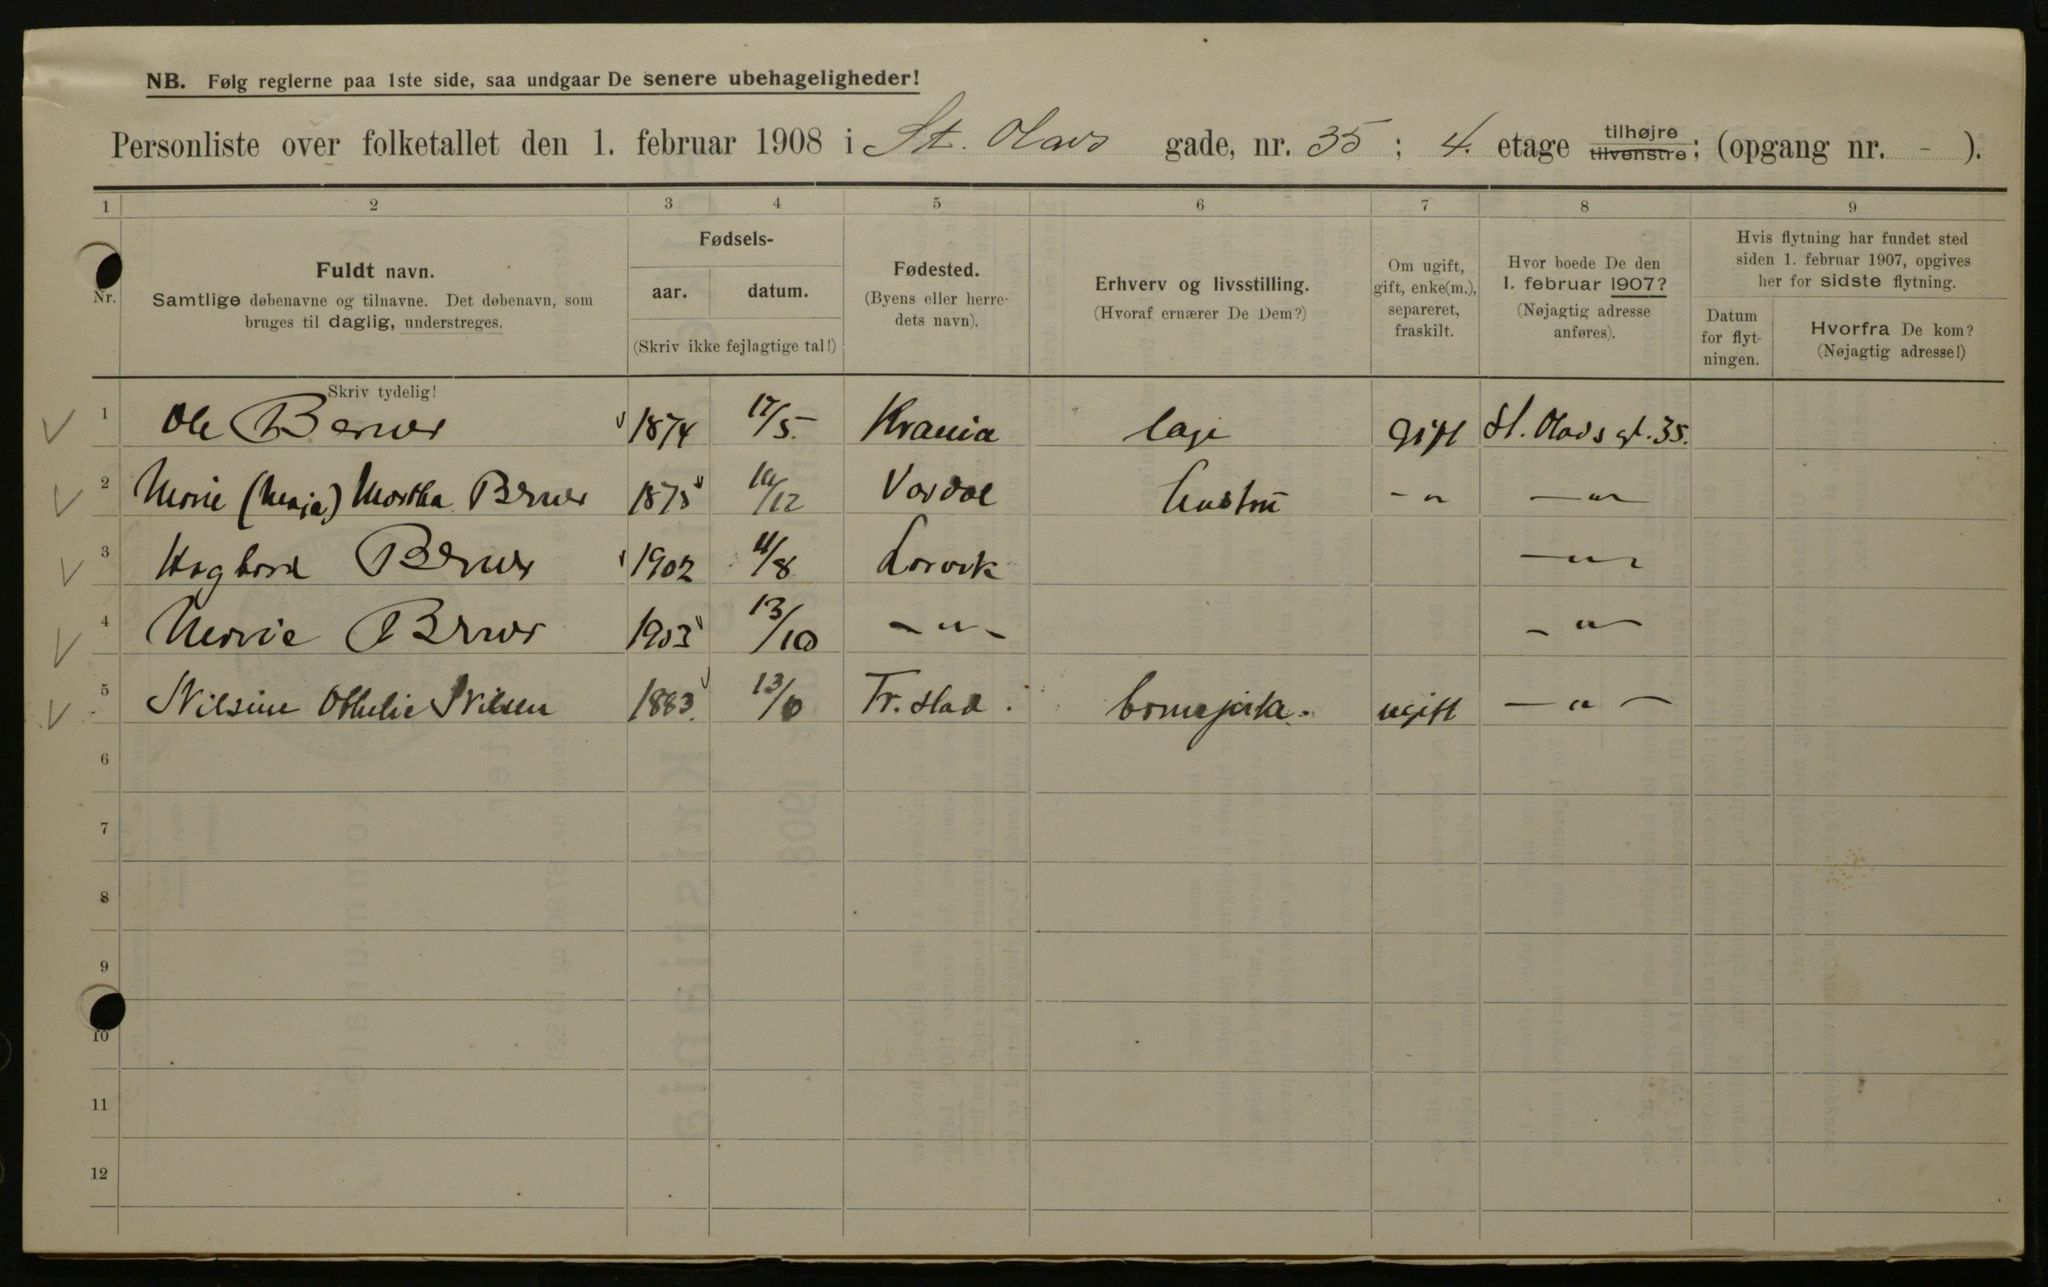 NB. Følg reglerne paa 1ste side, saa undgaar De senere ubehageligheder!
Personliste over folketallet den 1. februar 1908 i St. Olavs gade, nr. 35 ; 4. etage tilhøjre tilvenstre; (opgang nr. - ).
1 2 3 4 5 6 7 8 9
Nr.
Fuldt navn.
Samtlige døbenavne og tilnavne. Det døbenavn, som
bruges til daglig, understreges.
Fødsels-
aar. datum.
(Skriv ikke fejlagtige tal!)
Fødested.
(Byens eller herre-
dets navn).
Erhverv og livsstilling.
(Hvoraf ernærer De Dem?)
Om ugift,
gift, enke(m.),
separeret,
fraskilt.
Hvor boede De den
1. februar 1907?
(Nøjagtig adresse
anføres).
Hvis flytning har fundet sted
siden 1. februar 1907, opgives
her for sidste flytning.
Datum
for flyt-
ningen.
Hvorfra De kom?
(Nøjagtig adresse!)
Skriv tydelig!
1 Ole Berner 1874 17/5. Krania gift St. Olavs gt. 35.
2 Marie (Maja) Martha Berner 1875 /12 Hustru -„ —„—
3 Hagbard Berner 1902 11/8 Larvik —„—
4 Marie Berner 1903 13/10 -„- -„—
5 Nilsine Othilie Nilsen 1883. 13/ Fr. stad. ugift —„—
6
7
8
9
10
11
12